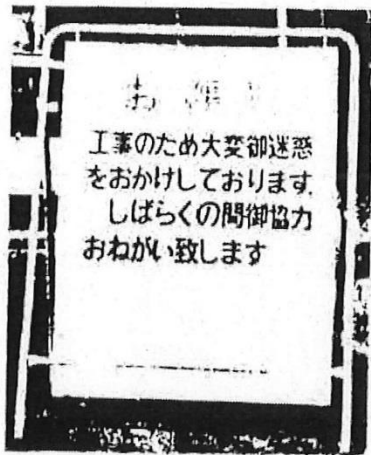 工事のため大変御迷惑
をおかけしております.
しばらくの間御協力
おねがい致します